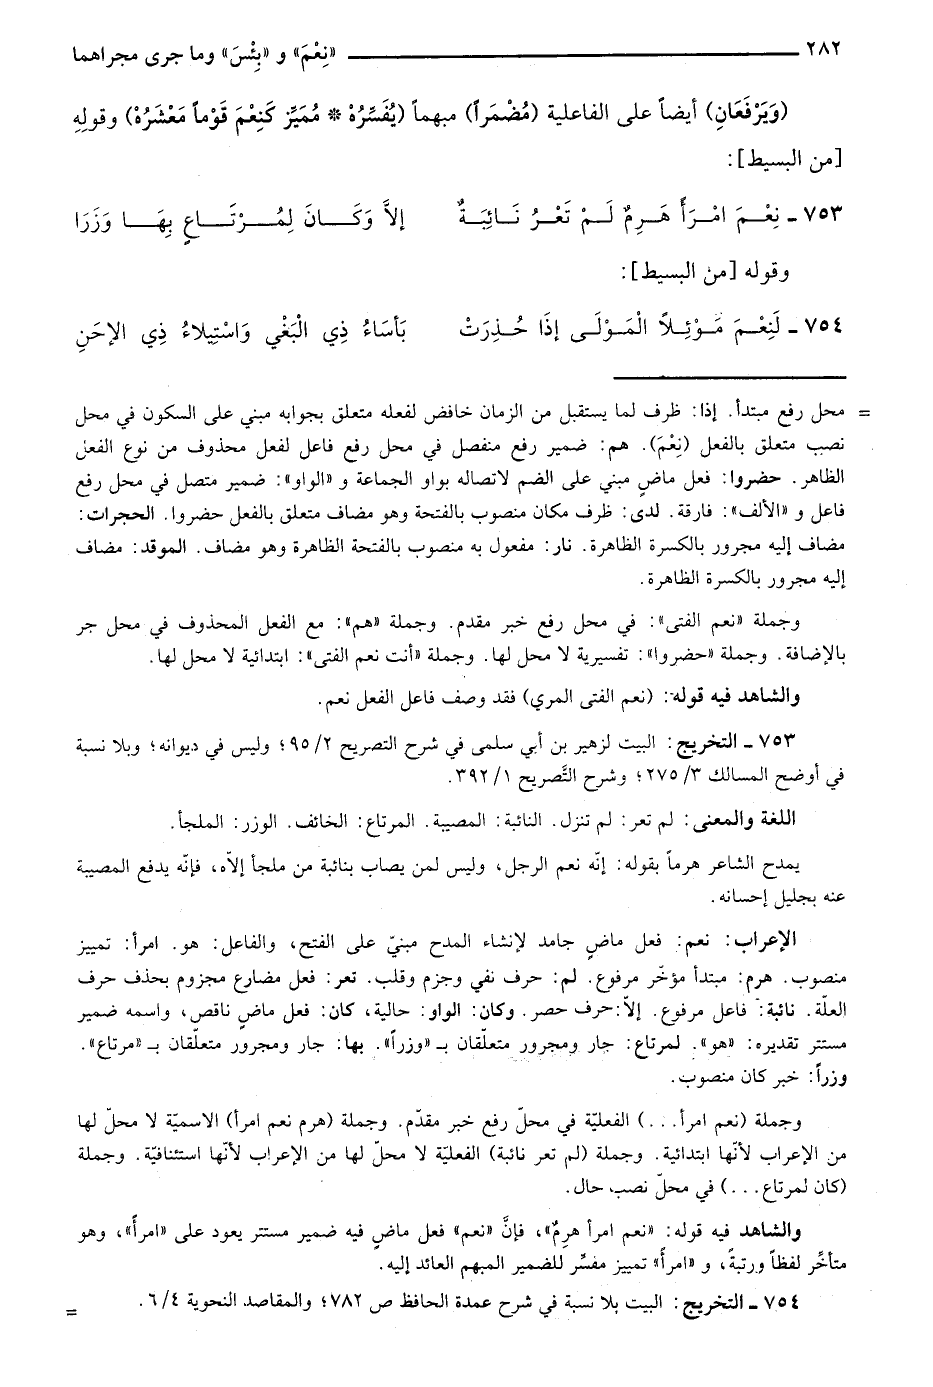 ٢٨٢ «نِعْمَ» و «بِئْسَ» وما جرى مجراهما
(وَيَرْفَعَانِ) أيضاً على الفاعلية (مُضْمَراً) مبهماً (يُفَسِّرُهْ * مُمَيِّز كَنِعْمَ قَوْماً مَعْشَرُهْ) وقولِهِ
[من البسيط]:
٧٥٣ ـ نِعْمَ امْرَأً هَرِمٌ لَمْ تَعْرُ نَائِبَةٌ إلاَّ وَكَانَ لِمُرْتَاعٍ بِهَا وَزَرَا
وقوله [من البسيط]:
٧٥٤ ـ لَنِعْمَ مَوْئِلاً الْمَوْلَى إذَا حُذِرَتْ بَأسَاءُ ذِي الْبَغْيِ وَاسْتِيلاءُ ذِي الإحَنِ
= محل رفع مبتدأ. إذا: ظرف لما يستقبل من الزمان خافض لفعله متعلق بجوابه مبني على السكون في محل
نصب متعلق بالفعل (نِعْمَ). هم: ضمير رفع منفصل في محل رفع فاعل لفعل محذوف من نوع الفعل
الظاهر. حضروا: فعل ماضٍ مبني على الضم لاتصاله بواو الجماعة و «الواو»: ضمير متصل في محل رفع
فاعل و «الألف»: فارقة. لدى: ظرف مكان منصوب بالفتحة وهو مضاف متعلق بالفعل حضروا. الحجرات:
مضاف إليه مجرور بالكسرة الظاهرة. نار: مفعول به منصوب بالفتحة الظاهرة وهو مضاف. الموقد: مضاف
إليه مجرور بالكسرة الظاهرة.
وجملة «نعم الفتى»: في محل رفع خبر مقدم. وجملة «هم»: مع الفعل المحذوف في محل جر
بالإضافة. وجملة «حضروا»: تفسيرية لا محل لها. وجملة «أنت نعم الفتى»: ابتدائية لا محل لها.
والشاهد فيه قوله: (نعم الفتى المري) فقد وصف فاعل الفعل نعم.
٧٥٣ ـ التخريج: البيت لزهير بن أبي سلمى في شرح التصريح ٢/ ٩٥؛ وليس في ديوانه؛ وبلا نسبة
في أوضح المسالك ٣/ ٢٧٥؛ وشرح التَّصريح ١/ ٣٩٢.
اللغة والمعنى: لم تعر: لم تنزل. النائبة: المصيبة. المرتاع: الخائف. الوزر: الملجأ.
يمدح الشاعر هرماً بقوله: إنّه نعم الرجل، وليس لمن يصاب بنائبة من ملجأ إلاّه، فإنّه يدفع المصيبة
عنه بجليل إحسانه.
الإعراب: نعم: فعل ماضٍ جامد لإنشاء المدح مبنيّ على الفتح، والفاعل: هو. امرأ: تمييز
منصوب. هرم: مبتدأ مؤخّر مرفوع. لم: حرف نفي وجزم وقلب. تعر: فعل مضارع مجزوم بحذف حرف
العلّة. نائبة: فاعل مرفوع. إلاّ: حرف حصر. وكان: الواو: حالية، كان: فعل ماضٍ ناقص، واسمه ضمير
مستتر تقديره: «هو». لمرتاع: جار ومجرور متعلّقان بـ «وزراً». بها: جار ومجرور متعلّقان بـ «مرتاع».
وزراً: خبر كان منصوب.
وجملة (نعم امرأ...) الفعليّة في محلّ رفع خبر مقدّم. وجملة (هرم نعم امرأ) الاسميّة لا محلّ لها
من الإعراب لأنّها ابتدائية. وجملة (لم تعر نائبة) الفعليّة لا محلّ لها من الإعراب لأنّها استئنافيّة. وجملة
(كان لمرتاع...) في محلّ نصب حال.
والشاهد فيه قوله: «نعم امرأ هرمٌ»، فإنَّ «نعم» فعل ماضٍ فيه ضمير مستتر يعود على «امرأ»، وهو
متأخِّر لفظاً ورتبةً، و «امرأً» تمييز مفسِّر للضمير المبهم العائد إليه.
٧٥٤ ـ التخريج: البيت بلا نسبة في شرح عمدة الحافظ ص ٧٨٢؛ والمقاصد النحوية ٤/ ٦. =